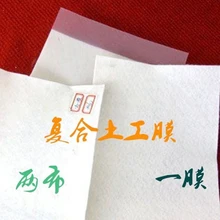 复合土工膜
两布
一膜